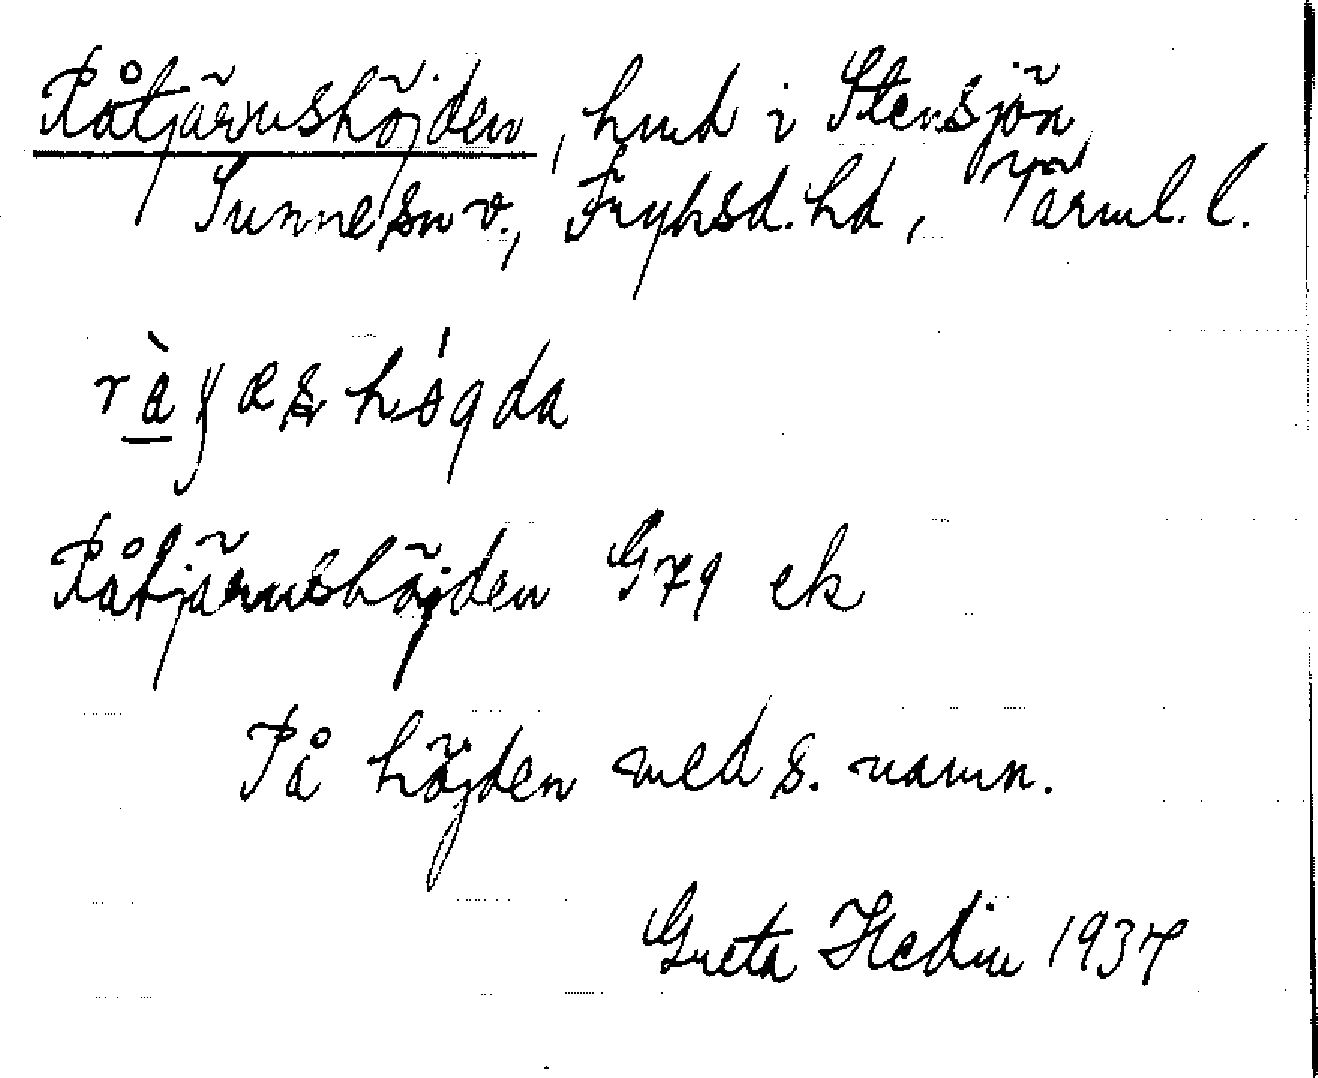 Råtjärnshöjden, hmd i Stensjön
Sunne sn v., Fryksd. hd, Värml. l.
Råtjärnshöjden G79 ek
På höjden med s. namn.
Greta Hedin 1937